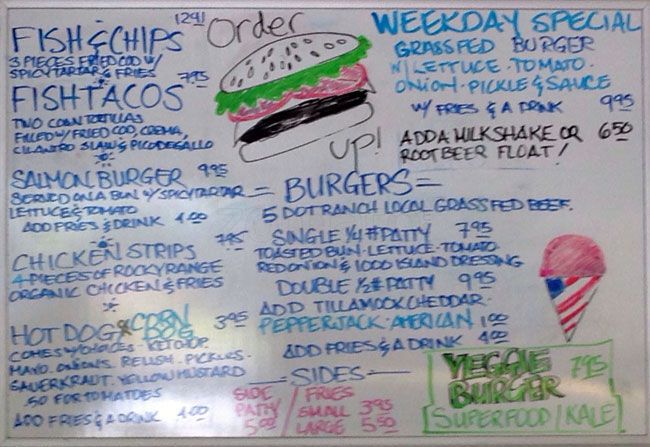 FISH & CHIPS 1291
3 PIECES FRIED COD W/
SPICY TARTAR & FRIES 7.95
FISH TACOS
TWO CORN TORTILLAS
FILLED W/ FRIED COD, CREMA,
CILANTRO SLAW & PICO DE GALLO
SALMON BURGER 9.95
SERVED ON A BUN W/ SPICY TARTAR
LETTUCE & TOMATO
ADD FRIES & DRINK 4.00
CHICKEN STRIPS 7.95
4 PIECES OF ROCKY RANGE
ORGANIC CHICKEN & FRIES
HOT DOG & CORN DOG 3.95
COMES W/ CHOICES · KETCHUP·
MAYO· ONIONS· RELISH· PICKLES·
SAUERKRAUT· YELLOW MUSTARD
.50 FOR TOMATOES
ADD FRIES & A DRINK 4.00
Order
UP!
WEEKDAY SPECIAL
GRASSFED BURGER
W/ LETTUCE · TOMATO·
ONION · PICKLE & SAUCE
W/ FRIES & A DRINK 9.95
ADD A MILKSHAKE OR 6.50
ROOT BEER FLOAT!
= BURGERS =
5 DOT RANCH LOCAL GRASSFED BEEF.
SINGLE 1/4 # PATTY 7.95
TOASTED BUN· LETTUCE· TOMATO·
RED ONION & 1000 ISLAND DRESSING
DOUBLE 1/2 # PATTY 9.95
ADD TILLAMOOK CHEDDAR·
PEPPERJACK · AMERICAN 1.00
ADD FRIES & A DRINK 4.00
= SIDES =
SIDE PATTY 5.00
FRIES
SMALL 3.95
LARGE 5.50
VEGGIE 7.95
BURGER
SUPERFOOD / KALE